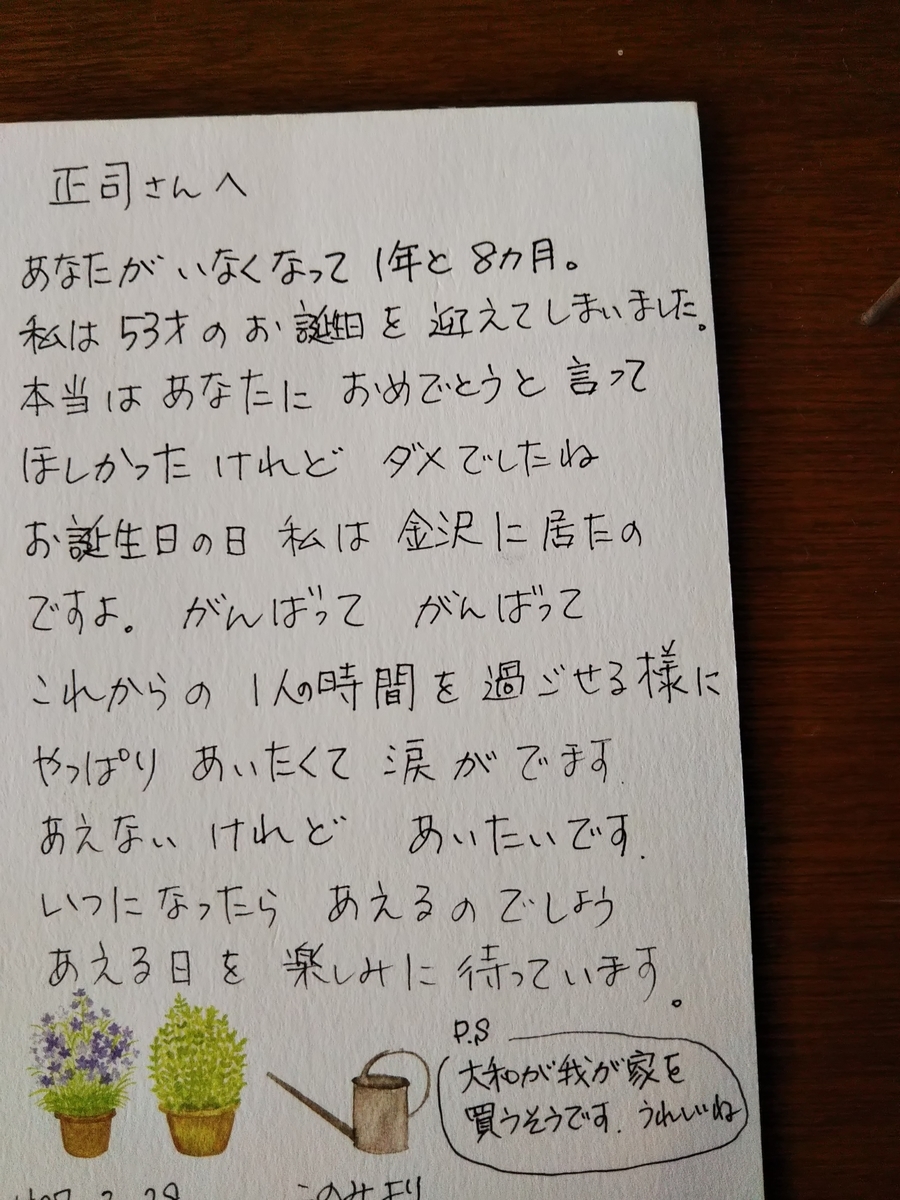 正司さんへ
あなたがいなくなって 1年と 8カ月。
私は 53才の お誕日を 迎えてしまいました。
本当は あなたに おめでとうと 言って
ほしかった けれど ダメでしたね
お誕生日の日 私は 金沢に 居たの
ですよ。 がんばって がんばって
これからの 1人の時間を 過ごせる様に
やっぱり あいたくて 涙が でます.
あえない けれど あいたいです.
いつになったら あえるの でしょう
あえる日を 楽しみに 待っています。
P.S
大和が我が家を
買うそうです. うれしいね
このみより